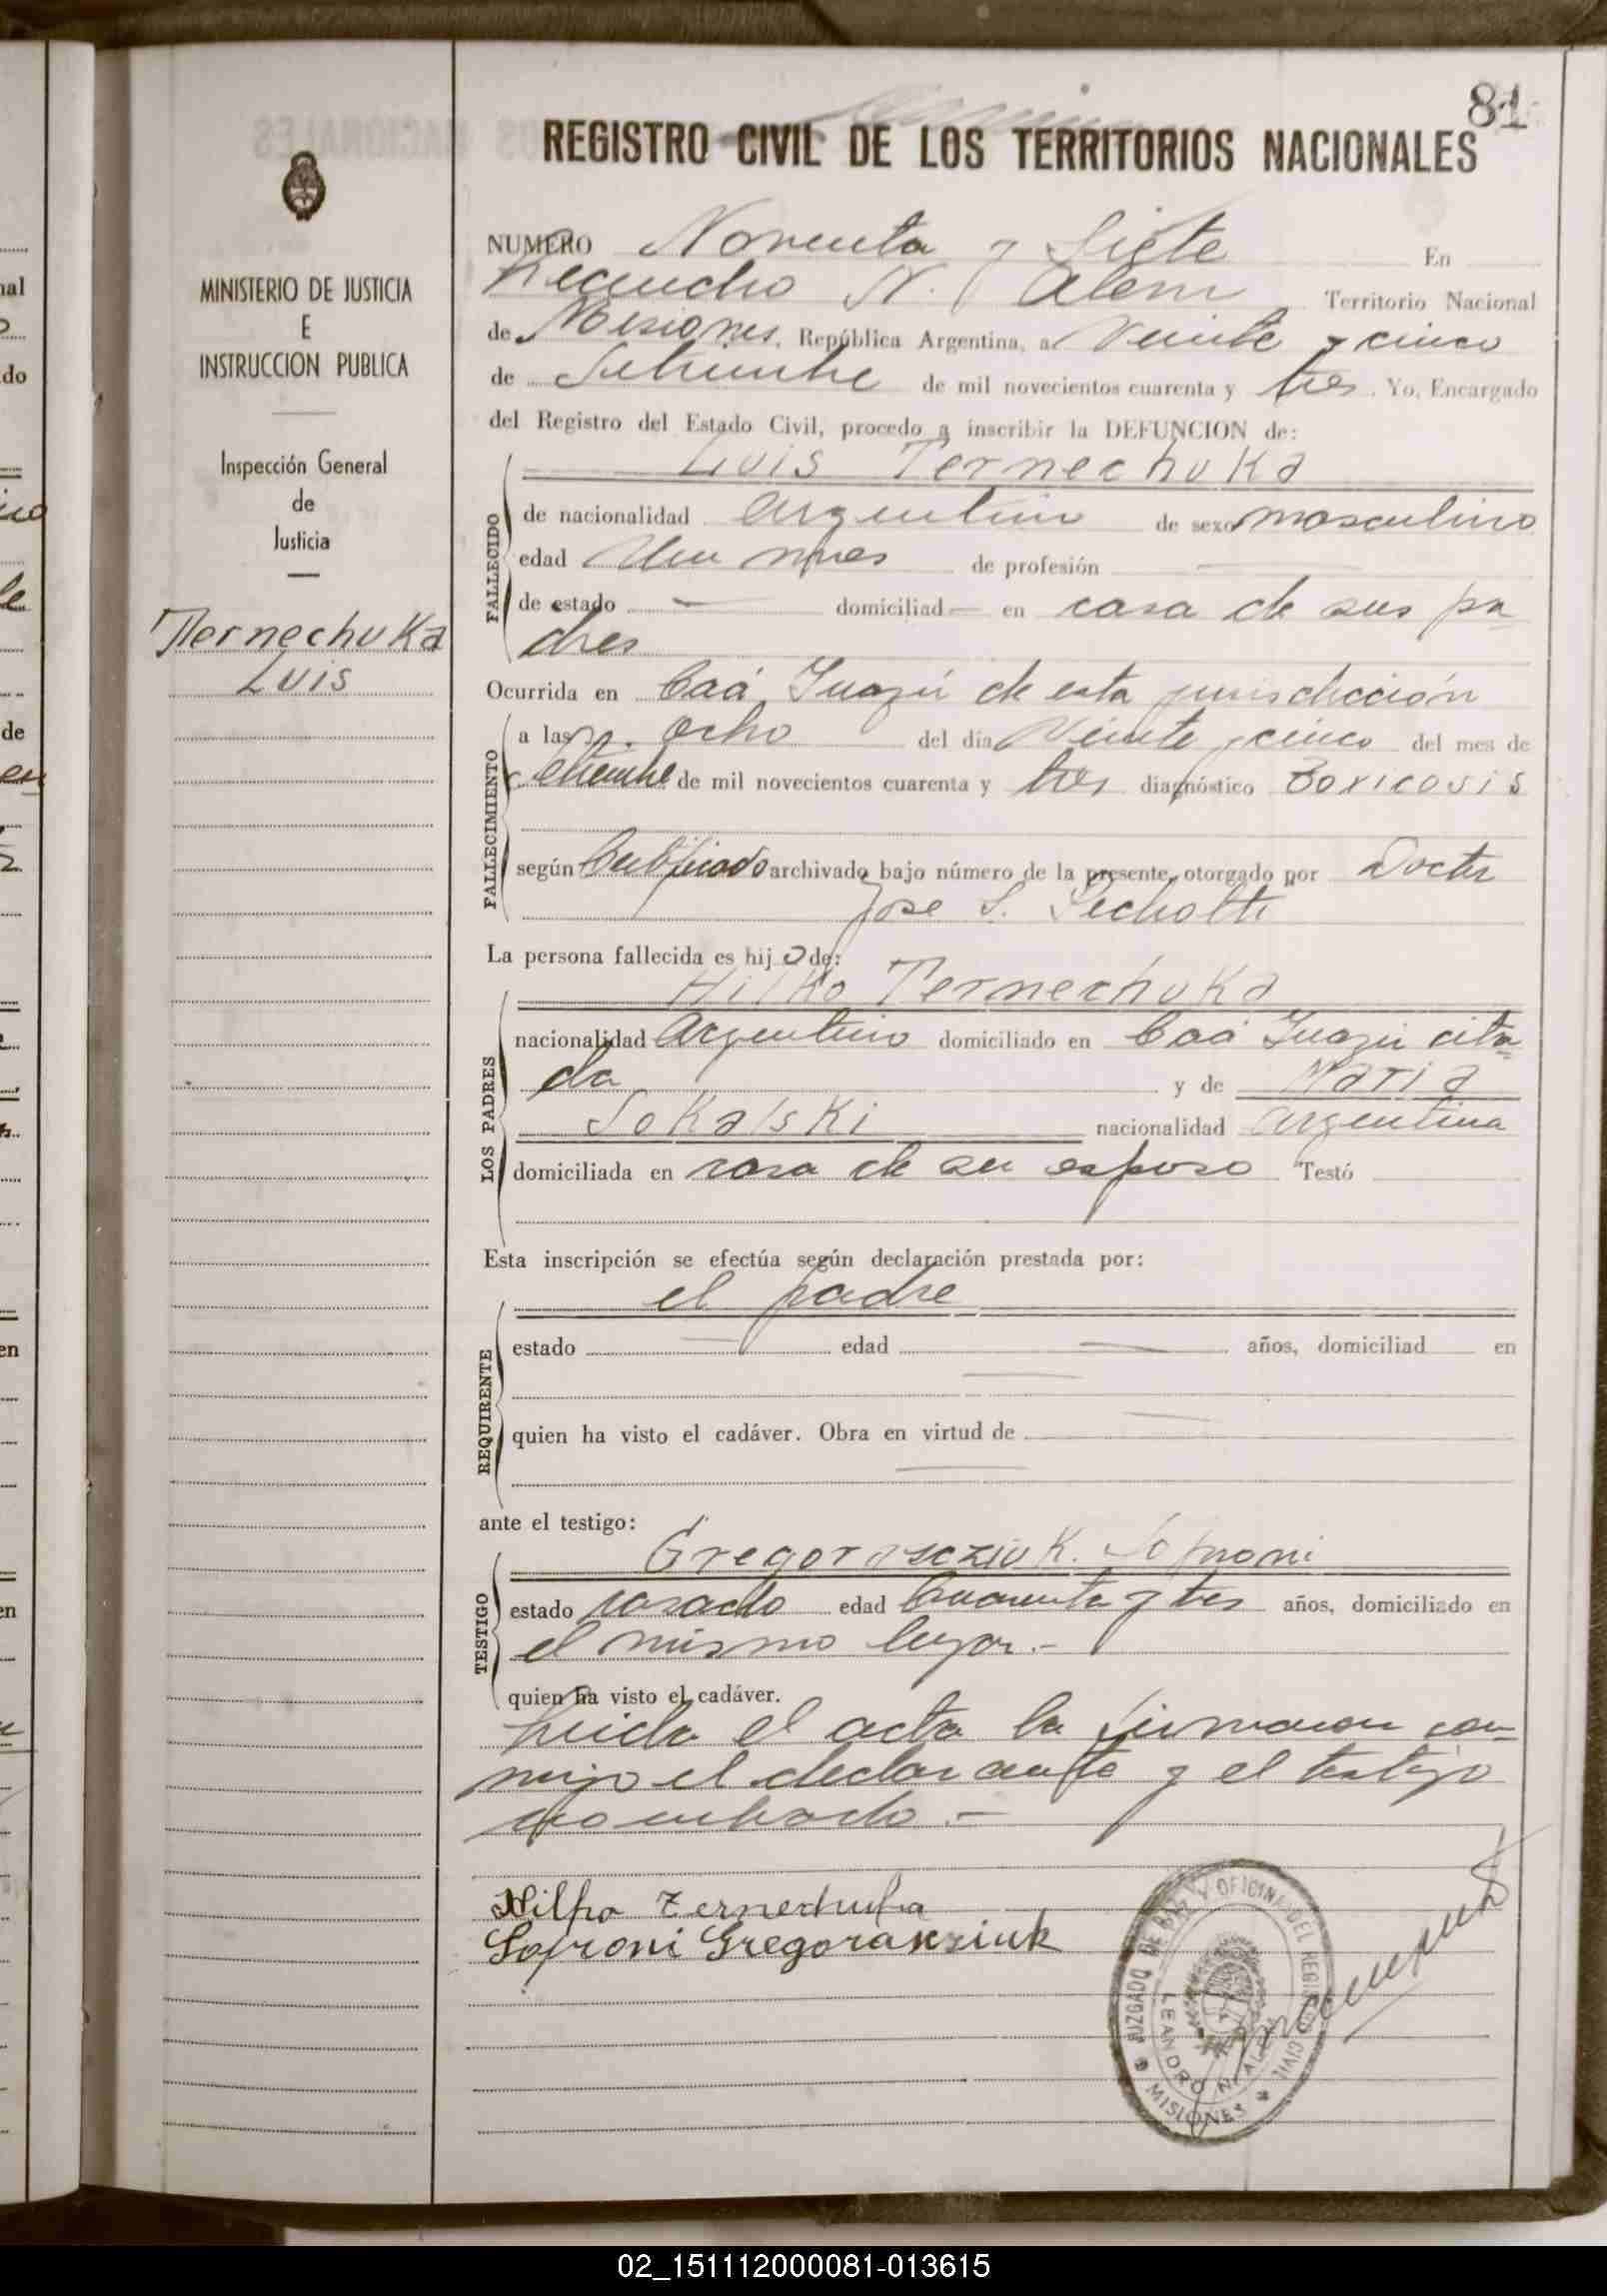 81
REGISTRO CIVIL DE LOS TERRITORIOS NACIONALES
MINISTERIO DE JUSTICIA
E
INSTRUCCION PUBLICA
Inspección General
de
Justicia
Ternechuka
Luis
NUMERO Noventa y Siete En
Leandro N. Alem Territorio Nacional
de Misiones, República Argentina, a Veinte y cinco
de Setiembre de mil novecientos cuarenta y tres. Yo, Encargado
del Registro del Estado Civil, procedo a inscribir la DEFUNCION de:
Luis Ternechuka
FALLECIDO
de nacionalidad argentino de sexo masculino
edad Un mes de profesión —
de estado — domiciliad— en casa de sus pa-
dres
Ocurrida en Caá Guazú de esta jurisdicción
FALLECIMIENTO
a las ocho del día Veinte y cinco del mes de
Setiembre de mil novecientos cuarenta y tres diagnóstico Toxicosis
según Certificado archivado bajo número de la presente, otorgado por Doctor
José S.
La persona fallecida es hijo de:
Hilko Ternechuka
LOS PADRES
nacionalidad Argentino domiciliado en Caá Guazú cita-
da y de Maria
Sokalski nacionalidad argentina
domiciliada en casa de su esposo Testó
Esta inscripción se efectúa según declaración prestada por:
el padre
REQUIRENTE
estado — edad — años, domiciliad en
quien ha visto el cadáver. Obra en virtud de —
ante el testigo:
Gregorascziuk. Soproni
TESTIGO
estado casado edad Cuarenta y tres años, domiciliado en
el mismo lugar.-
quien ha visto el cadáver.
Leida el acta la firmaron con-
migo el declarante y el testigo
nombrado.-
Hilko Ternechuka
Soproni Gregoraszziuk
JUZGADO DE PAZ Y OFICINA DEL REGISTRO CIVIL
LEANDRO N. ALEM
MISIONES
02_151112000081-013615